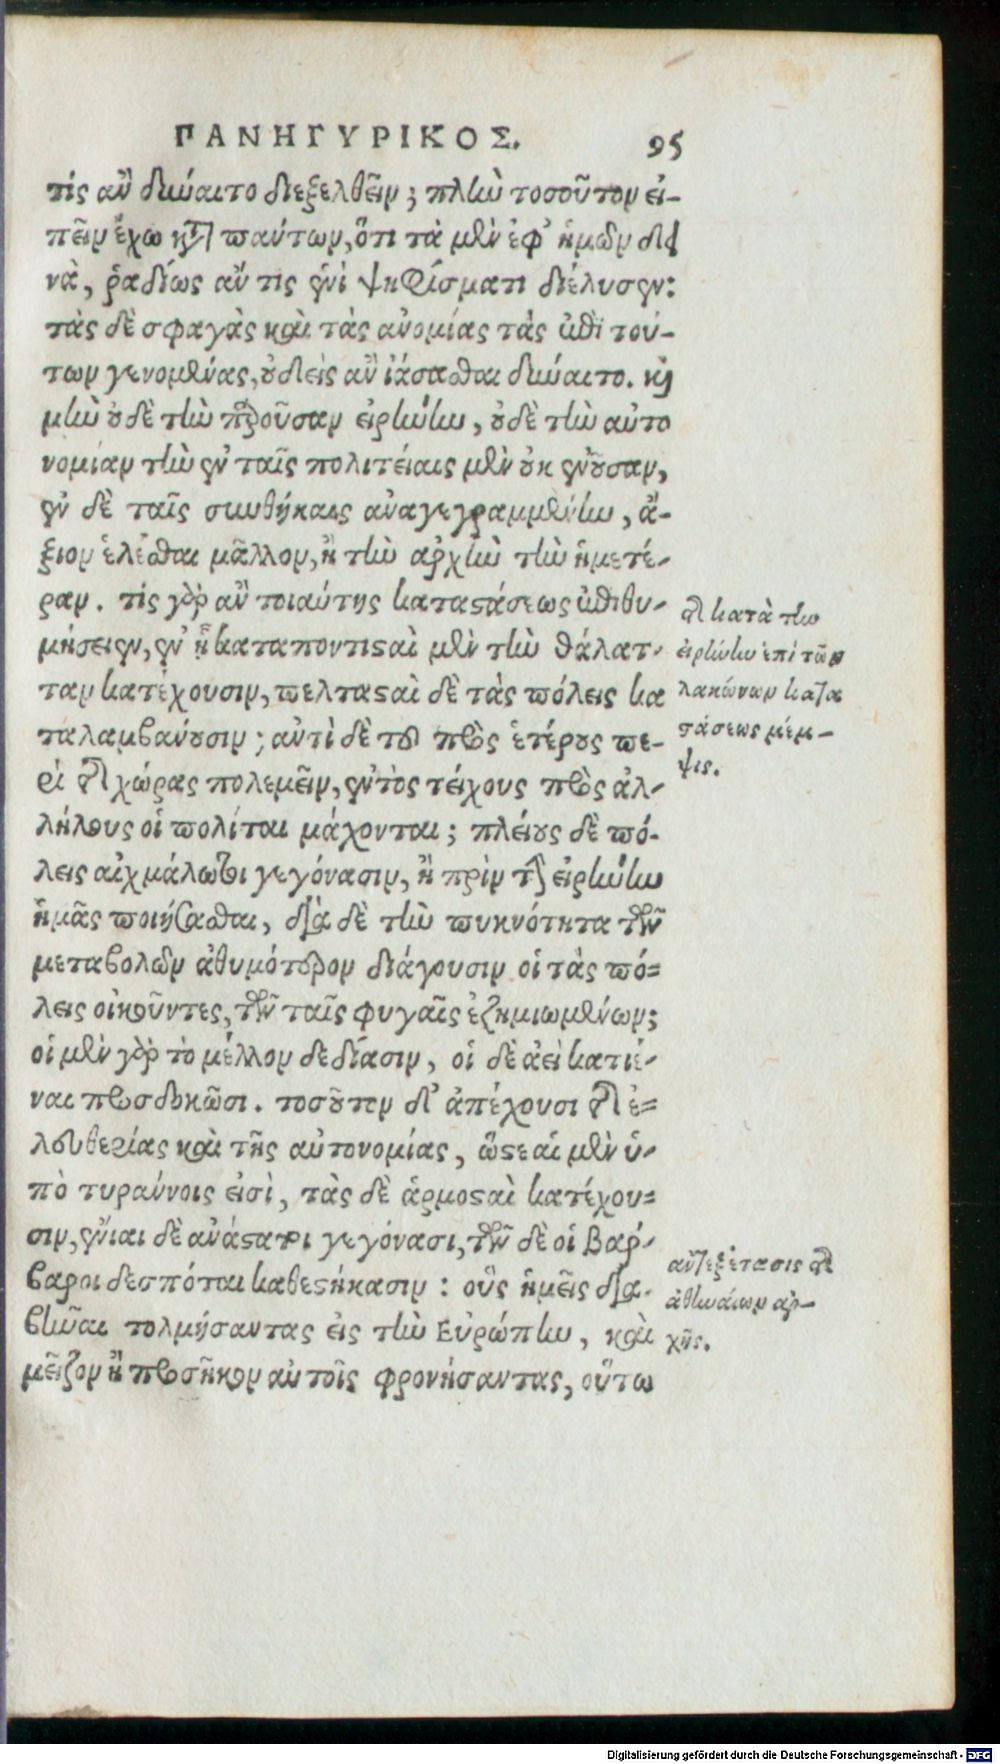 ΠΑΝΗΓΥΡΙΚΟΣ. 95
τίς ἂν δύναιτο διεξελθεῖν; πλὴν τοσοῦτον εἰ-
πεῖν ἔχω κατὰ πάντων, ὅτι τὰ μὲν ἐφ' ἡμῶν δει
νὰ, ῥαδίως ἄν τις ἑνὶ ψηφίσματι διέλυσεν:
τὰς δὲ σφαγὰς καὶ τὰς ἀνομίας τὰς ἐπὶ τού-
των γενομένας, οὐδεὶς ἂν ἰάσασθαι δύναιτο. καὶ
μὴν οὐδὲ τὴν παροῦσαν εἰρήνην, οὐδὲ τὴν αὐτο
νομίαν τὴν ἐν ταῖς πολιτείαις μὲν οὐκ ἐνοῦσαν,
ἐν δὲ ταῖς συνθήκαις ἀναγεγραμμένην, ἄ-
ξιον ἑλέσθαι μᾶλλον, ἢ τὴν ἀρχὴν τὴν ἡμετέ-
ραν. τίς γὰρ ἂν τοιαύτης καταστάσεως ἐπιθυ-
μήσειεν, ἐν ᾗ καταποντισταὶ μὲν τὴν θάλατ-
ταν κατέχουσιν, πελτασταὶ δὲ τὰς πόλεις κα
ταλαμβάνουσιν; ἀντὶ δὲ τοῦ πρὸς ἑτέρους πε-
ρὶ τῆς χώρας πολεμεῖν, ἐντὸς τείχους πρὸς ἀλ-
λήλους οἱ πολίται μάχονται; πλείους δὲ πό-
λεις αἰχμάλωτοι γεγόνασιν, ἢ πρὶν τὴν εἰρήνην
ἡμᾶς ποιήσασθαι, διὰ δὲ τὴν πυκνότητα τῶν
μεταβολῶν ἀθυμότερον διάγουσιν οἱ τὰς πό-
λεις οἰκοῦντες, τῶν ταῖς φυγαῖς ἐζημιωμένων;
οἱ μὲν γὰρ τὸ μέλλον δεδίασιν, οἱ δὲ ἀεὶ κατιέ-
ναι προσδοκῶσι. τοσοῦτον δ' ἀπέχουσι τῆς ἐ-
λευθερίας καὶ τῆς αὐτονομίας, ὥστε αἱ μὲν ὑ-
πὸ τυράννοις εἰσὶ, τὰς δὲ ἁρμοσταὶ κατέχου-
σιν, ἔνιαι δὲ ἀνάστατοι γεγόνασι, τῶν δὲ οἱ βάρ-
βαροι δεσπόται καθεστήκασιν: οὓς ἡμεῖς δια-
βῆναι τολμήσαντας εἰς τὴν Εὐρώπην, καὶ
μεῖζον ἢ προσῆκον αὐτοῖς φρονήσαντας, οὕτω
τῆς κατὰ τὴν
εἰρήνην ἐπὶ τῶν
λακώνων κατα
στάσεως μέμ-
ψις.
ἀντεξέτασις τῆς
ἀθηναίων ἀρ-
χῆς.
Digitalisierung gefördert durch die Deutsche Forschungsgemeinschaft - DFG